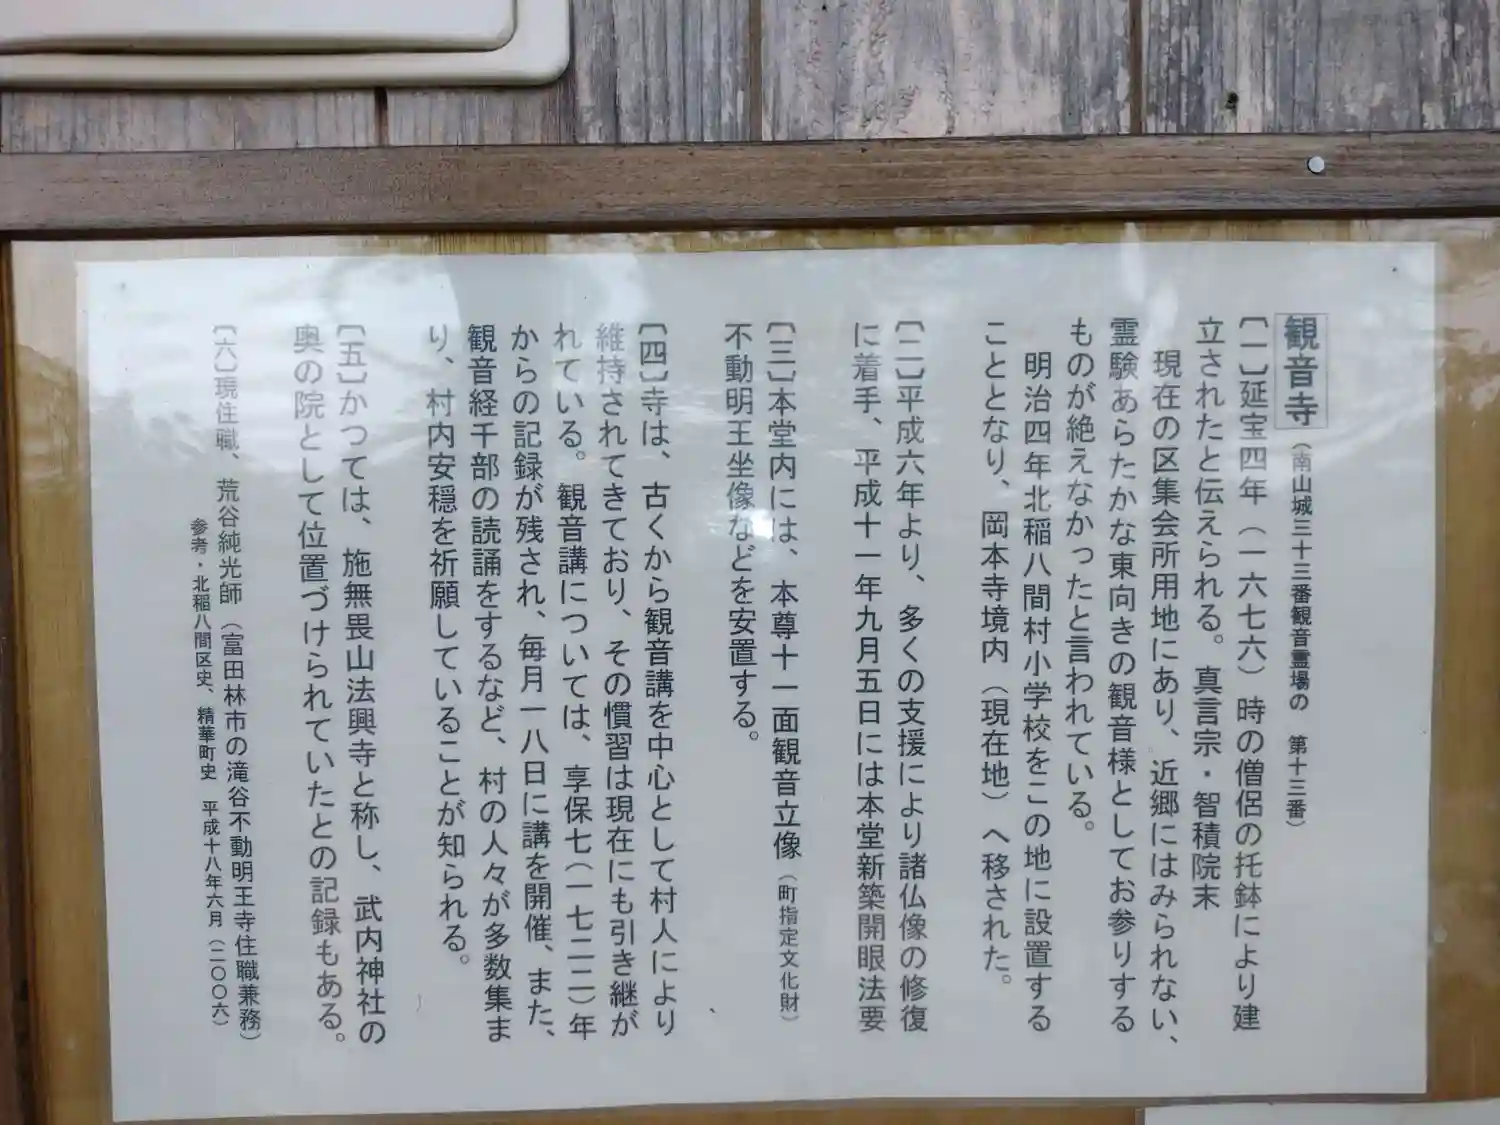 観音寺（南山城三十三番観音霊場の　第十三番）
［一］延宝四年（一六七六）時の僧侶の托鉢により建
立されたと伝えられる。真言宗・智積院末
　現在の区集会所用地にあり、近郷にはみられない、
霊験あらたかな東向きの観音様としてお参りする
ものが絶えなかったと言われている。
　明治四年北稲八間村小学校をこの地に設置する
こととなり、岡本寺境内（現在地）へ移された。
［二］平成六年より、多くの支援により諸仏像の修復
に着手、平成十一年九月五日には本堂新築開眼法要
［三］本堂内には、本尊十一面観音立像（町指定文化財）
不動明王坐像などを安置する。
［四］寺は、古くから観音講を中心として村人により
維持されてきており、その慣習は現在にも引き継が
れている。観音講については、享保七（一七二二）年
からの記録が残され、毎月一八日に講を開催、また、
観音経千部の読誦をするなど、村の人々が多数集ま
り、村内安穏を祈願していることが知られる。
［五］かつては、施無畏山法興寺と称し、武内神社の
奥の院として位置づけられていたとの記録もある。
［六］現住職、荒谷純光師（富田林市の滝谷不動明王寺住職兼務）
参考・北稲八間区史、精華町史　平成十八年六月（二〇〇六）